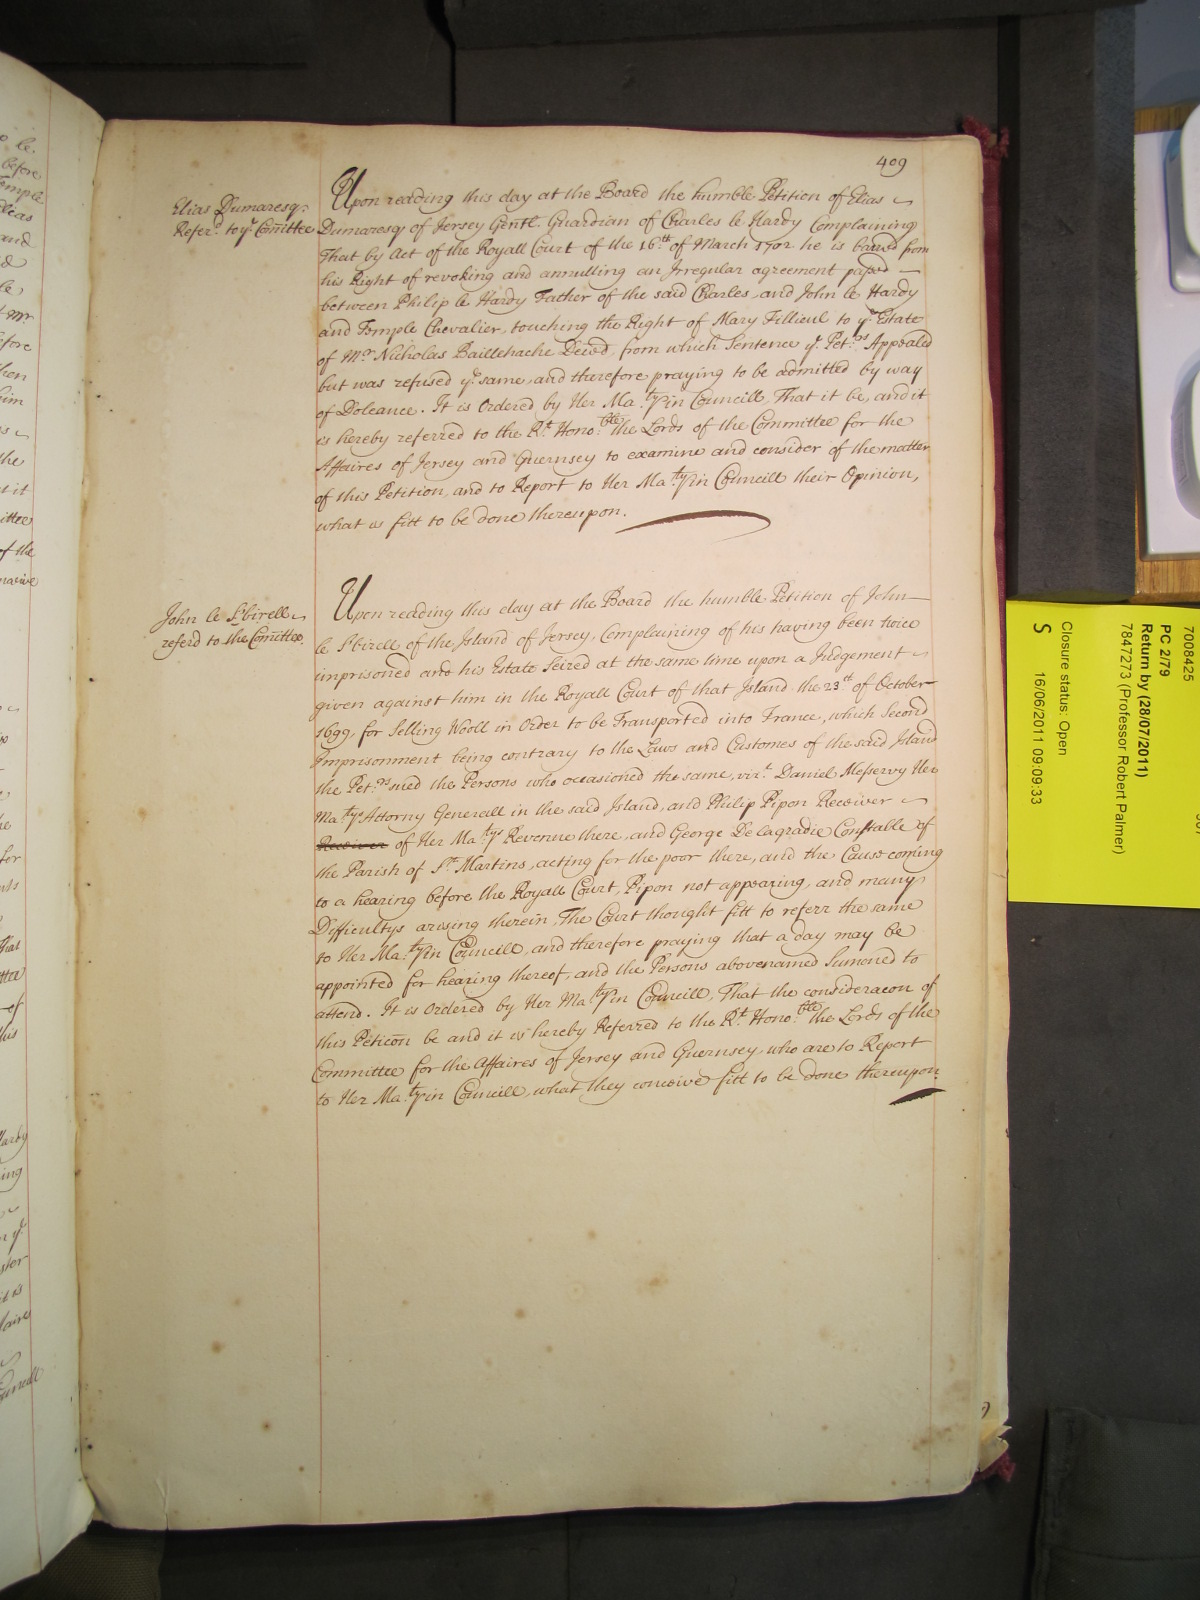 409
Elias Dumaresq.
Refer.d to y.e Comittee
Upon reading this day at the Board the humble Petition of Elias
Dumaresq of Jersey Gentl. Guardian of Charles le Hardy Complaining
That by Act of the Royall Court of the 16.th of March 1702 he is barred from
his Right of revoking and annulling an Irregular agreement passed
between Philip le Hardy Father of the said Charles, and John le Hardy
and Temple Chevalier, touching the Right of Mary Fillieul to y.e Estate
of M.r Nicholas Baillehache Deced, from which Sentence y.e Pet.rs Appealed
but was refused y.e same, and therefore praying to be admitted by way
of Doleance. It is Ordered by Her Ma.ty in Councill, That it be, and it
is hereby referred to the R.t Hono.ble the Lords of the Committee for the
Affaires of Jersey and Guernsey to examine and consider of the matter
of this Petition, and to Report to Her Ma.ty in Councill their Opinion,
what is fitt to be done thereupon.
John le Sbirell
referd to the Comittee.
Upon reading this day at the Board the humble Petition of John
le Sbirell of the Island of Jersey, Complaining of his having been twice
imprisoned and his Estate Seized at the same time upon a Judgement
given against him in the Royall Court of that Island the 23.th of October
1699, for Selling Wooll in Order to be Transported into France, which Second
Imprisonment being contrary to the Laws and Customes of the said Island
the Pet.rs sued the Persons who occasioned the same, viz.t Daniel Messervy Her
Ma.tys Attorny Generall in the said Island, and Philip Pipon Receiver
Receiver of Her Ma.tys Revenue there, and George De Lagradie Constable of
the Parish of S.t Martins, acting for the poor there, and the Cause coming
to a hearing before the Royall Court, Pipon not appearing, and many
Difficultys arising therein, The Court thought fitt to referr the same
to Her Ma.ty in Councill, and therefore praying that a day may be
appointed for hearing thereof, and the Persons abovenamed Sumoned to
attend. It is Ordered by Her Ma.ty in Councill, That the consideracon of
this Peticon be and it is hereby Referred to the R.t Hono.ble the Lords of the
Committee for the Affaires of Jersey and Guernsey, who are to Report
to Her Ma.ty in Councill, what they conceive fitt to be done thereupon.
7008425
PC 2/79
Return by (28/07/2011)
7847273 (Professor Robert Palmer)
Closure status: Open
S 16/06/2011 09:09:33